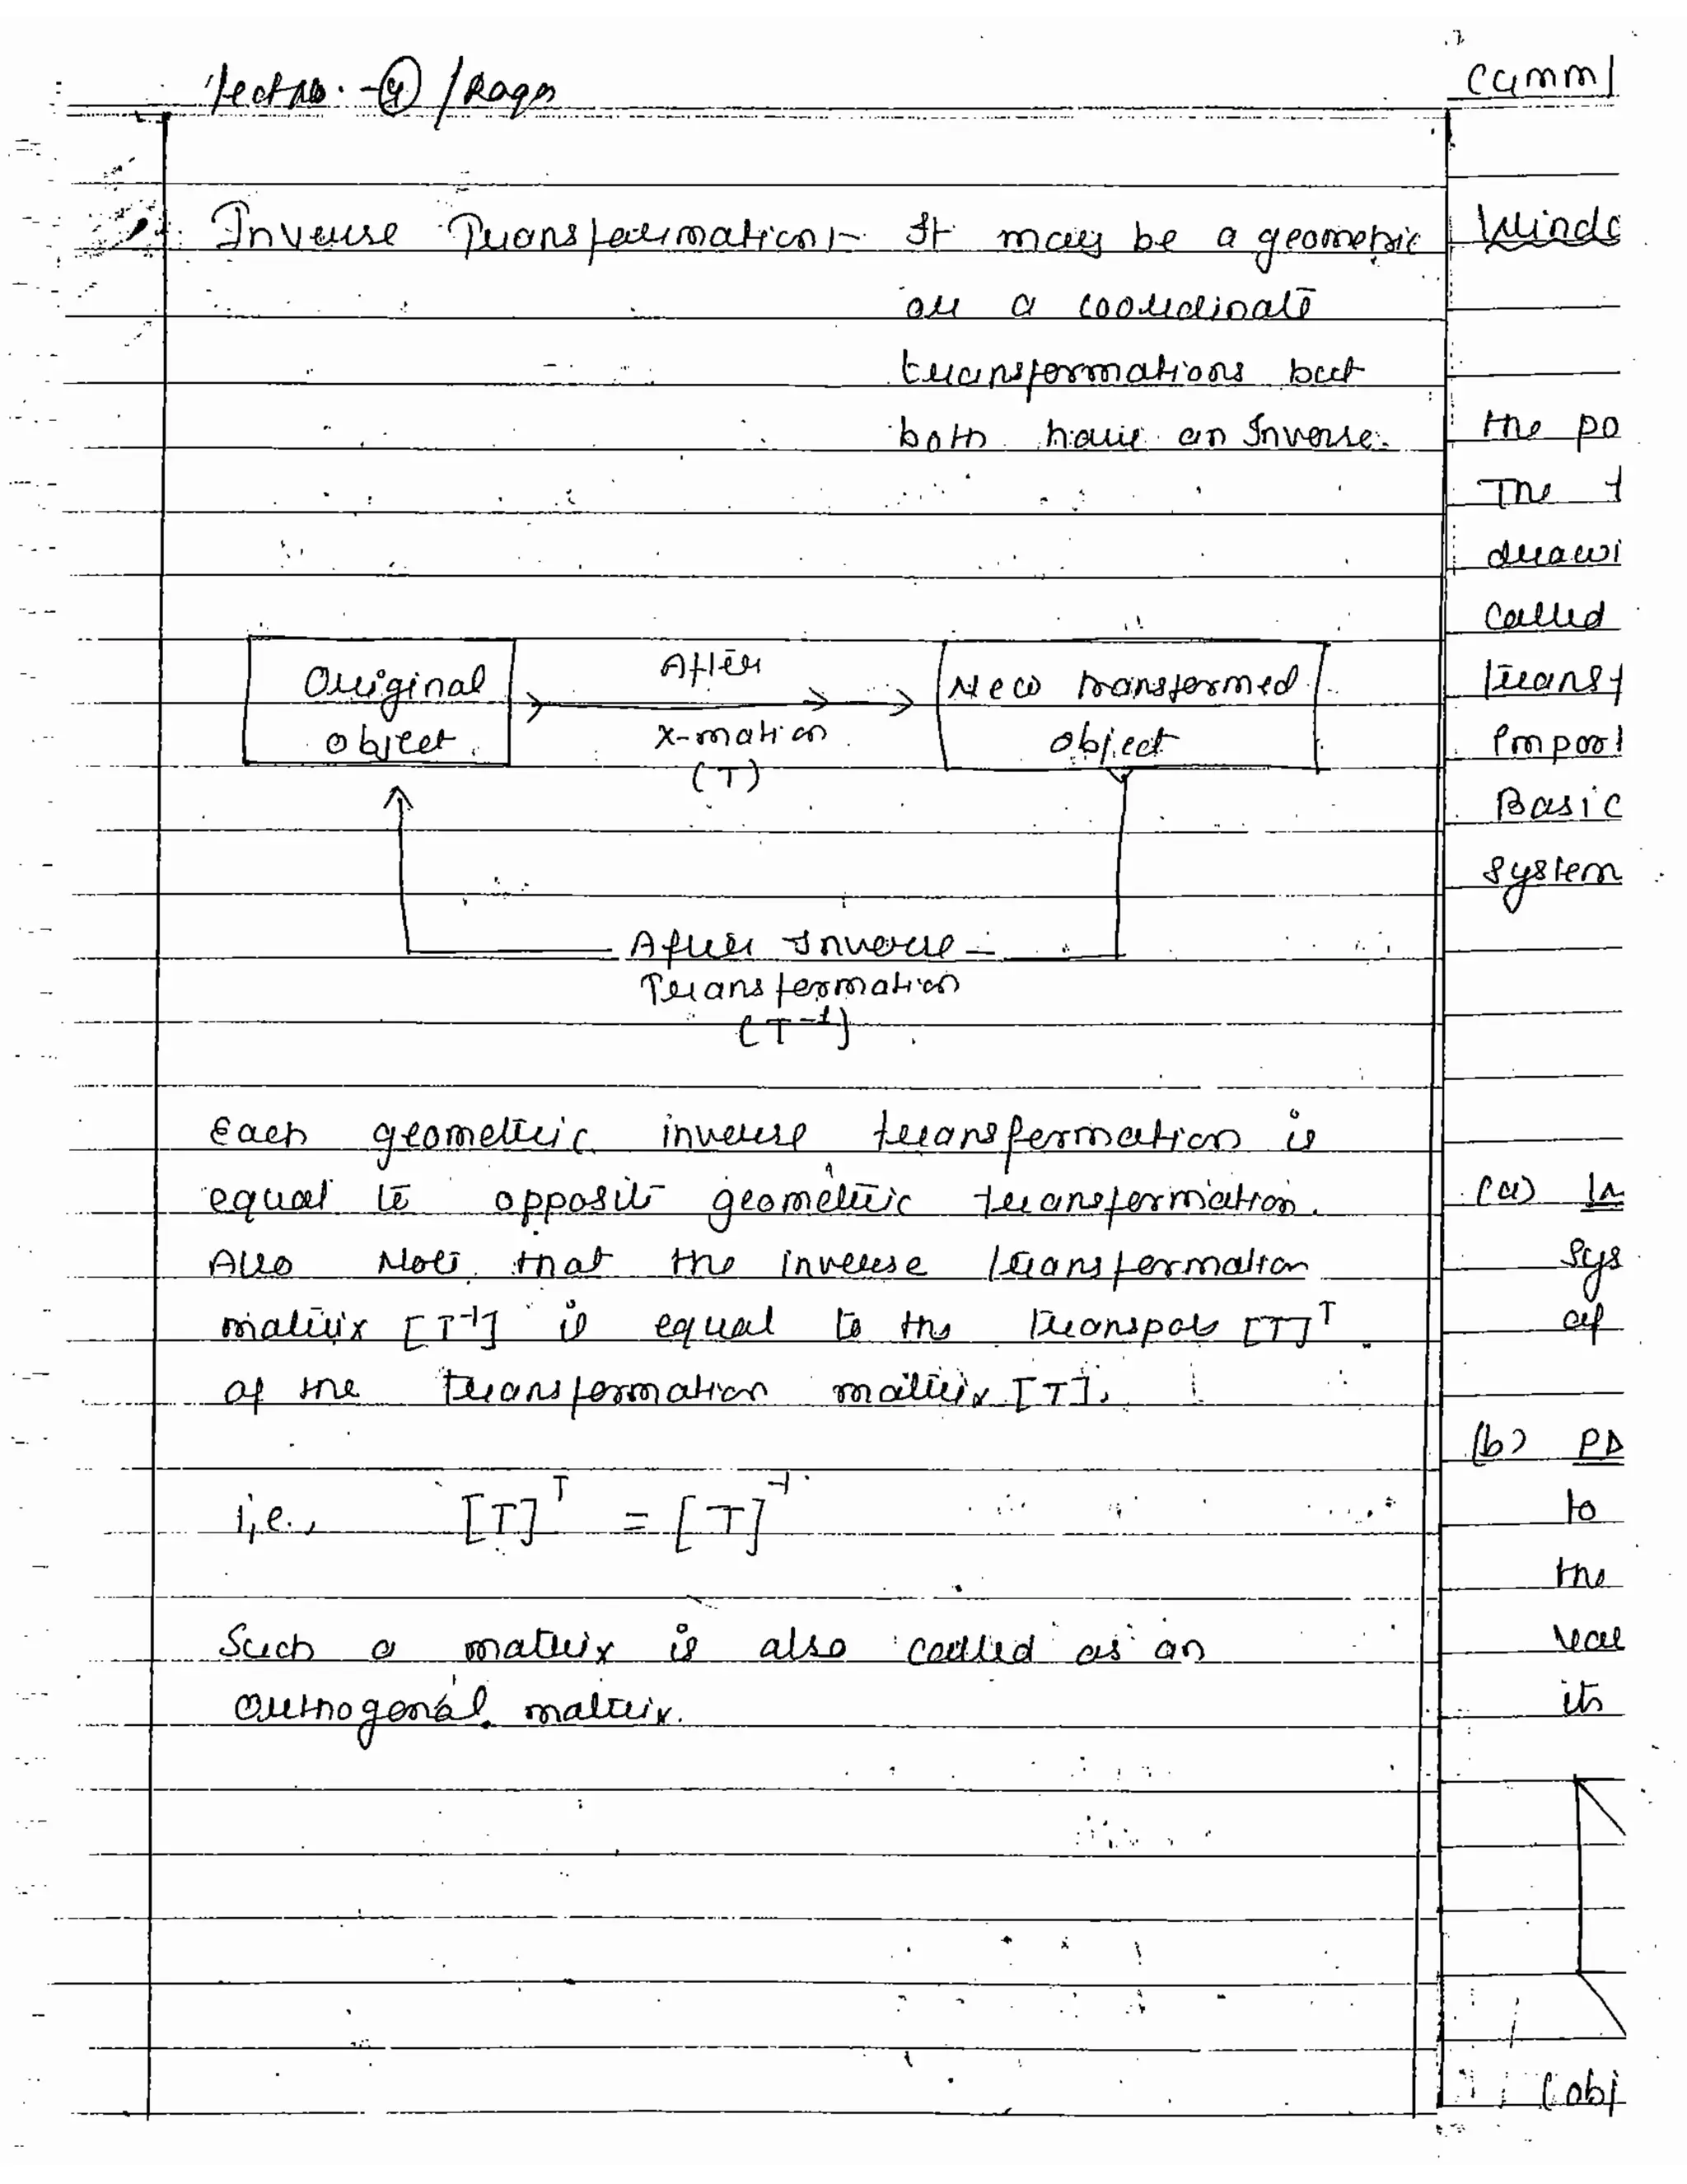 Inverse Transformation:- It may be a geometric
or a coordinate
transformations but
both have an Inverse.
Original
object
After
x-mation
(T)
New transformed
object
After Inverse
Transformation
(T⁻¹)
Each geometric inverse transformation is
equal to opposit geometric transformation.
Also Note that the inverse transformation
matrix [T⁻¹] is equal to the transpos [T]ᵀ
of the transformation matrix [T].
i,e., [T]ᵀ = [T]⁻¹
Such a matrix is also called as an
orthogonal matrix.
Windo
the po
The t
drawi
called
transf
Impor
Basic
system
(a) In
sys
of
(b) PD
to
the
its
(obj